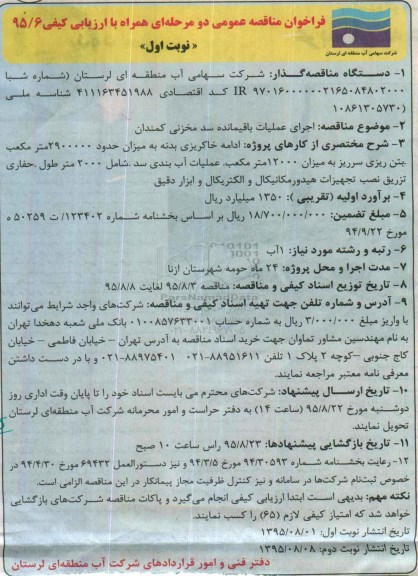 فراخوان مناقصه عمومی دو مرحله‌ای همراه با ارزیابی کیفی ۹۵/۶
« نوبت اول»
شرکت سهامی آب منطقه ای لرستان
۱- دستگاه مناقصه‌گذار: شرکت سهامی آب منطقه ای لرستان (شماره شبا
IR ۹۷۰۱۶۰۰۰۰۰۰۲۱۶۵۰۸۴۸۰۲۰۰۰ کد اقتصادی ۴۱۱۱۶۳۴۵۱۹۸۸ شناسه ملی
۱۰۸۶۱۳۰۵۷۳۰)
۲- موضوع مناقصه: اجرای عملیات باقیمانده سد مخزنی کمندان
۳- شرح مختصری از کارهای پروژه: ادامه خاکریزی بدنه به میزان حدود ۲۹۰۰۰۰۰متر مکعب
،بتن ریزی سرریز به میزان ۱۲۰۰۰متر مکعب، عملیات آب بندی سد ،شامل ۲۰۰۰ متر طول ،حفاری
تزریق نصب تجهیزات هیدورمکانیکال و الکتریکال و ابزار دقیق
۴- برآورد اولیه (تقریبی ): ۱۳۵۰ میلیارد ریال
۵- مبلغ تضمین: ۱۸/۷۰۰/۰۰۰/۰۰۰ ریال بر اساس بخشنامه شماره ۱۲۳۴۰۲/ ت ۵۰۲۵۹ ه
مورخ ۹۴/۹/۲۲
۶- رتبه و رشته مورد نیاز: ۱آب
۷- مدت اجرا و محل پروژه: ۲۴ ماه حومه شهرستان ازنا
۸- تاریخ توزیع اسناد کیفی و مناقصه: مناقصه ۹۵/۸/۳ لغایت ۹۵/۸/۸
۹- آدرس و شماره تلفن جهت تهیه اسناد کیفی و مناقصه: شرکت‌های واجد شرایط می‌توانند
با واریز مبلغ ۳/۰۰۰/۰۰۰ ریال به شماره حساب ۰۱۰۰۸۵۷۶۳۳۰۰۱ بانک ملی شعبه دهخدا تهران
به نام مهندسین مشاور تماوان جهت خرید اسناد مناقصه به آدرس تهران – خیابان فاطمی – خیابان
کاج جنوبی –کوچه ۲ پلاک ۱ تلفن ۸۸۹۵۱۶۱۱-۰۲۱ ۸۸۹۷۵۴۰۱-۰۲۱ و با در دست داشتن
معرفی نامه معتبر مراجعه نمایند.
۱۰- تاریخ ارسال پیشنهاد: شرکت‌های محترم می بایست اسناد خود را تا پایان وقت اداری روز
دوشنبه مورخ ۹۵/۸/۲۲ (ساعت ۱۴) به دفتر حراست و امور محرمانه شرکت آب منطقه‌ای لرستان
تحویل نمایند.
۱۱- تاریخ بازگشایی پیشنهادها: ۹۵/۸/۲۳ راس ساعت ۱۰ صبح
۱۲-رعایت بخشنامه شماره ۹۴/۳۰۵۹۳ مورخ ۹۴/۳/۵ و نیز دستورالعمل ۶۹۴۳۲ مورخ ۹۴/۴/۳۰ در
خصوص ثبت‌نام شرکت‌ها در سامانه و نیز کنترل ظرفیت مجاز پیمانکار در این مناقصه الزامی است.
نکته مهم: بدیهی است ابتدا ارزیابی کیفی انجام می‌گیرد و پاکات مناقصه شرکت‌های بازگشایی
خواهد شد که امتیاز کیفی لازم (۶۵) را کسب نمایند.
تاریخ انتشار نوبت اول: ۱۳۹۵/۰۸/۰۱
تاریخ انتشار نوبت دوم: ۱۳۹۵/۰۸/۰۸
دفتر فنی و امور قراردادهای شرکت آب منطقه‌ای لرستان